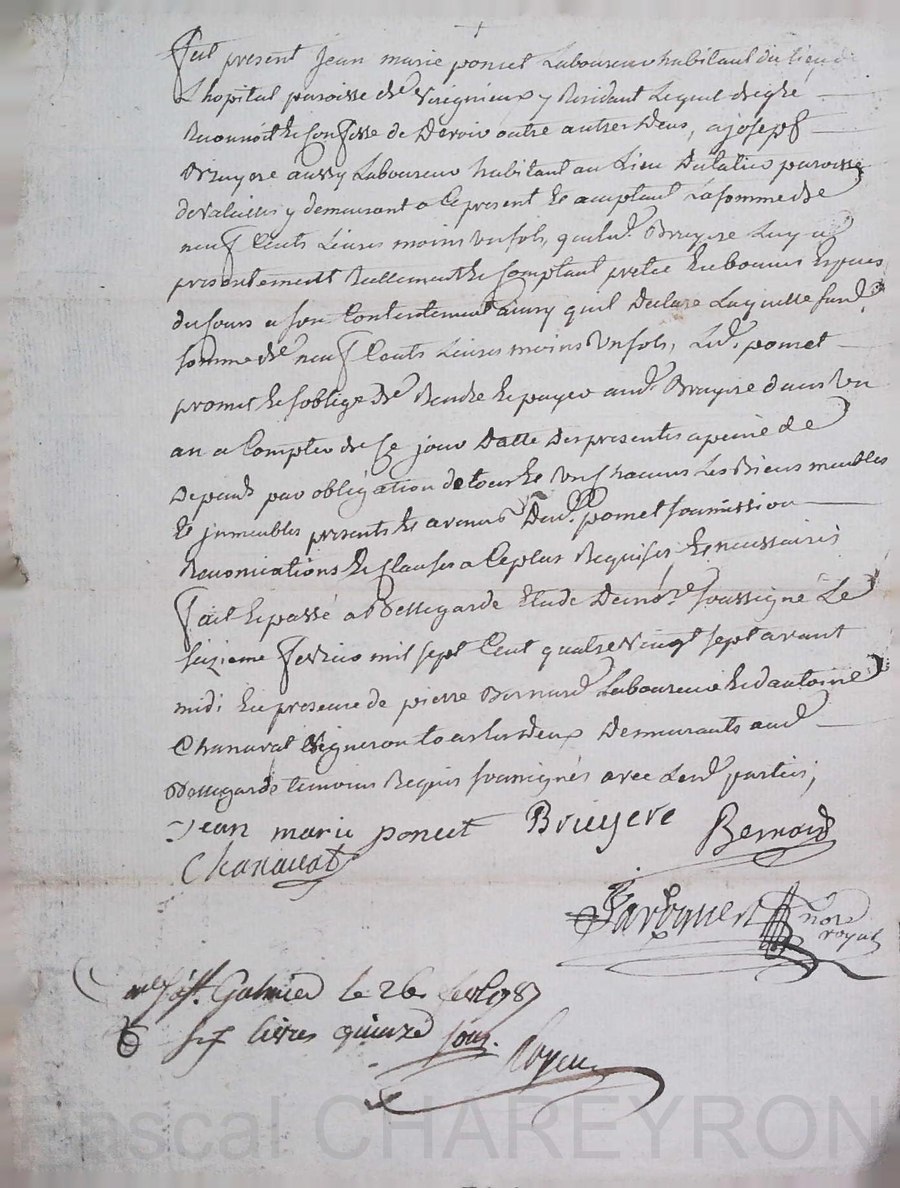 Fut present Jean marie poncet Laboureur habitant du lieu de
L'hopital paroisse de y Residant Lequel de gre
Reconnoit et Confesse de Devoir outre autres Deus, a joseph
Bruyere aussy Laboureur habitant au Lieu Dulatier paroisse
devaleilles y demeurant a ce present et acceptant La somme de
neuf Cents Livres moins un sols, que led. Bruyere Luy a
presentement Reellement et Comptant pretée En bonnes Especes
du Cours a son Contentement ainsy quil Declare Laquelle susd.
somme de neuf Cents Livres moins un sols, Led. poncet
promet et soblige de Rendre et payer aud. Bruyere dans un
an a Compter de Ce jour Datte Des presentes a peine de
Depend par obligation de tous et un chacuns Les Biens meubles
et jmmeubles presents et avenirs Dud. poncet soumission
Renonciations et Clauses a Ce plus Requises et necessaires
Fait et passé a Bellegarde Etude De no.re soussigné Le
seizieme Fevrier mil sept Cent quatre vingt sept avant
midi En presence de pierre Bernard Laboureur et d'antoine
Chanavat Vigneron tous les deux Demeurants aud.
Bellegarde temoins Requis soussignés avec Lesd. parties;
Jean marie poncet Bruyere Bernard
Chanavat
no.re
royal
a st. Galmier le 26 fev. 1787
six livres quinze sous.